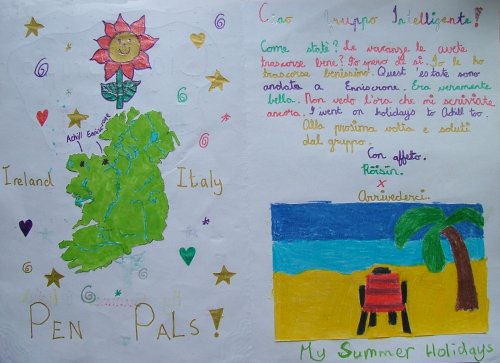 Achill Enniscrone
Ireland Italy
PEN PALS!
Ciao gruppo Intelligente!
Come state? Le vacanze le avete
trascorse bene? Io spero di si. Io le ho
trascorse benissimo. Quest'estate sono
andata a Enniscrone. Era veramente
bella. Non vedo l'ora che mi scriviate
ancora. I went on holidays to Achill too.
Alla prossima volta e saluti
dal gruppo.
Con affeto.
Róisín.
x
Arrivederci.
My Summer Holidays